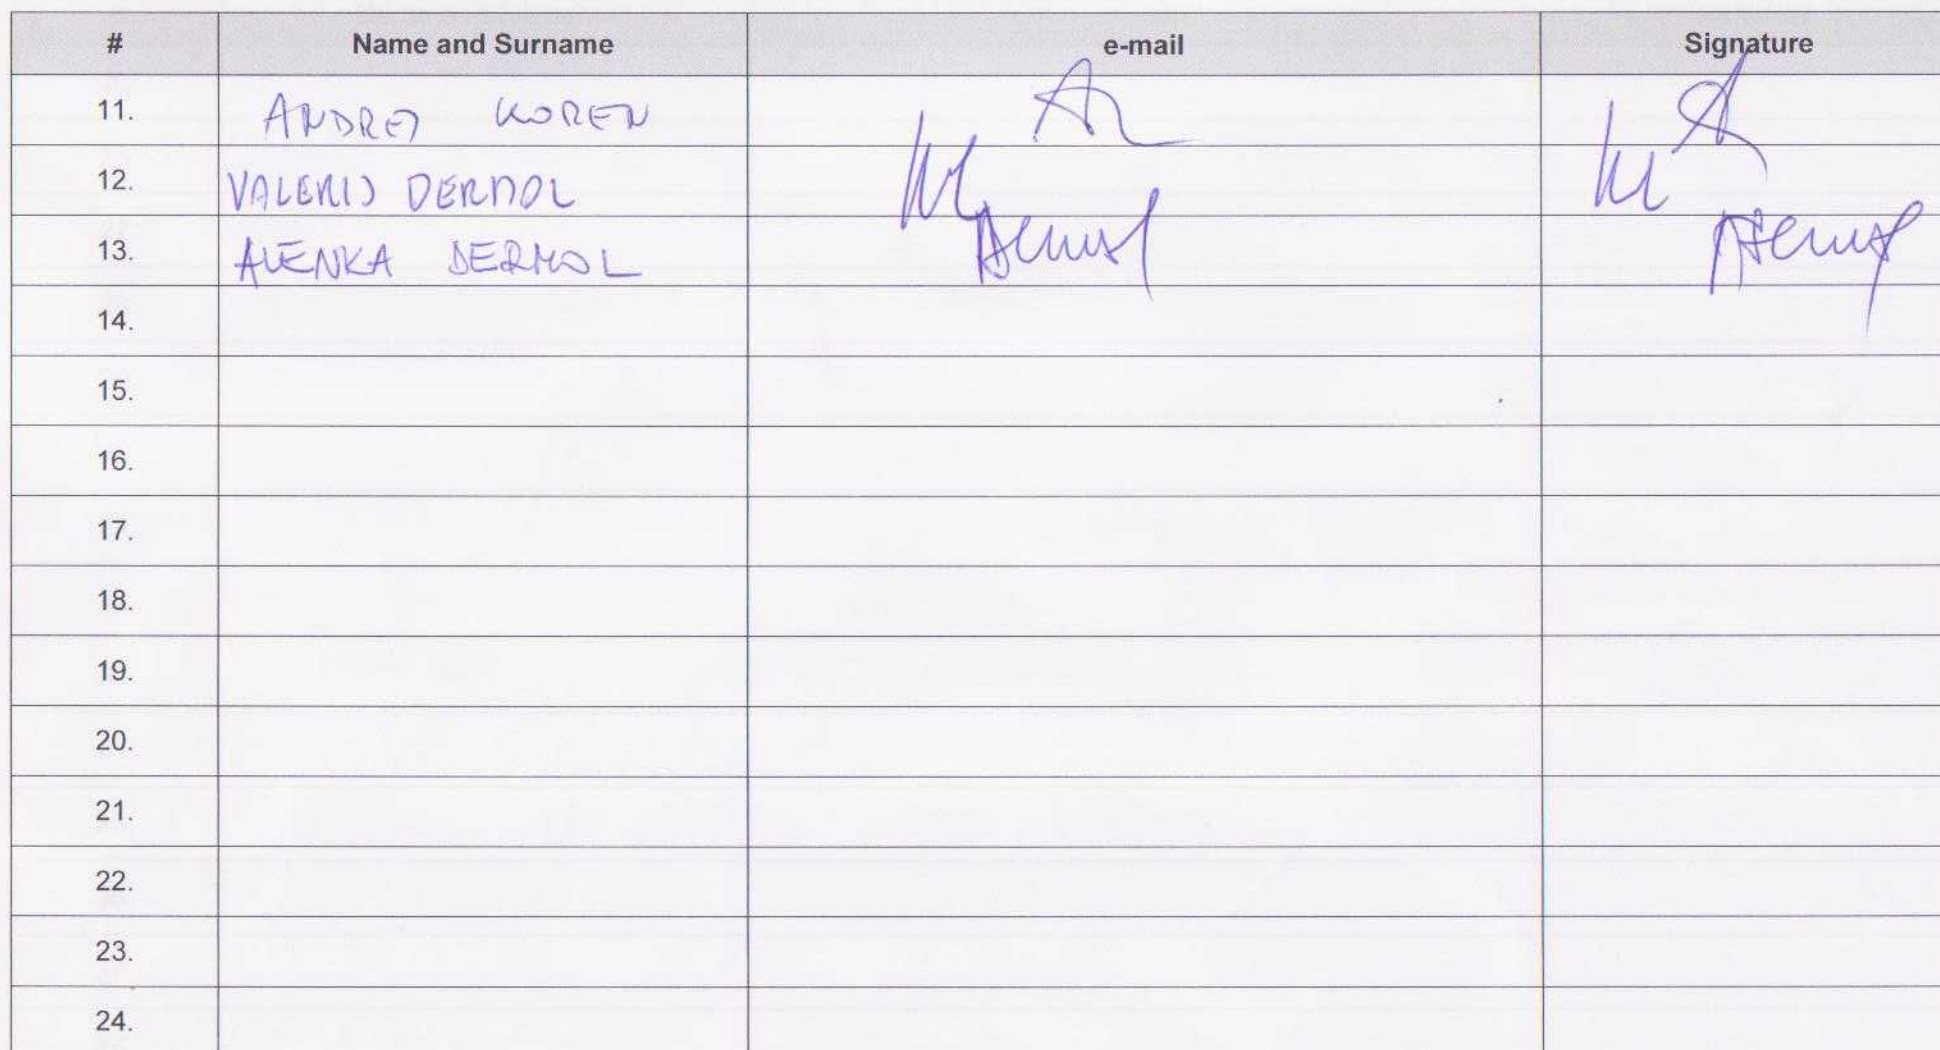 # Name and Surname e-mail Signature
11. ANDREJ KOREN
12. VALERIJ DERMOL
13. ALENKA DERMOL
14.
15.
16.
17.
18.
19.
20.
21.
22.
23.
24.